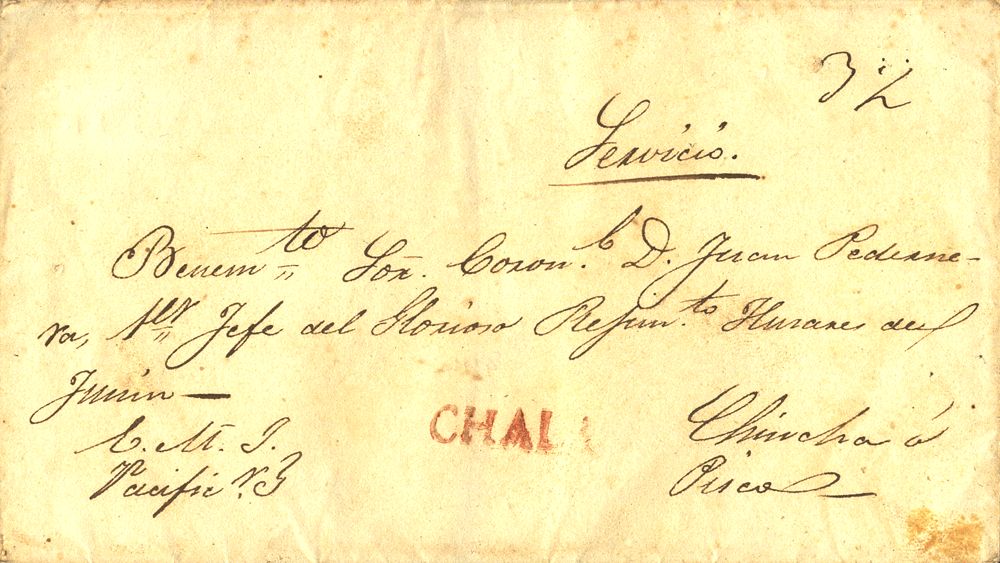 3 1/2
Servicio.
Benem.to Sor. Coron.l D. Juan Pederne-
ra, 1er Jefe del Glorioso Rejim.to Husares de
Junin —
E. M. J.
CHALA
Chincha ó
Pisco